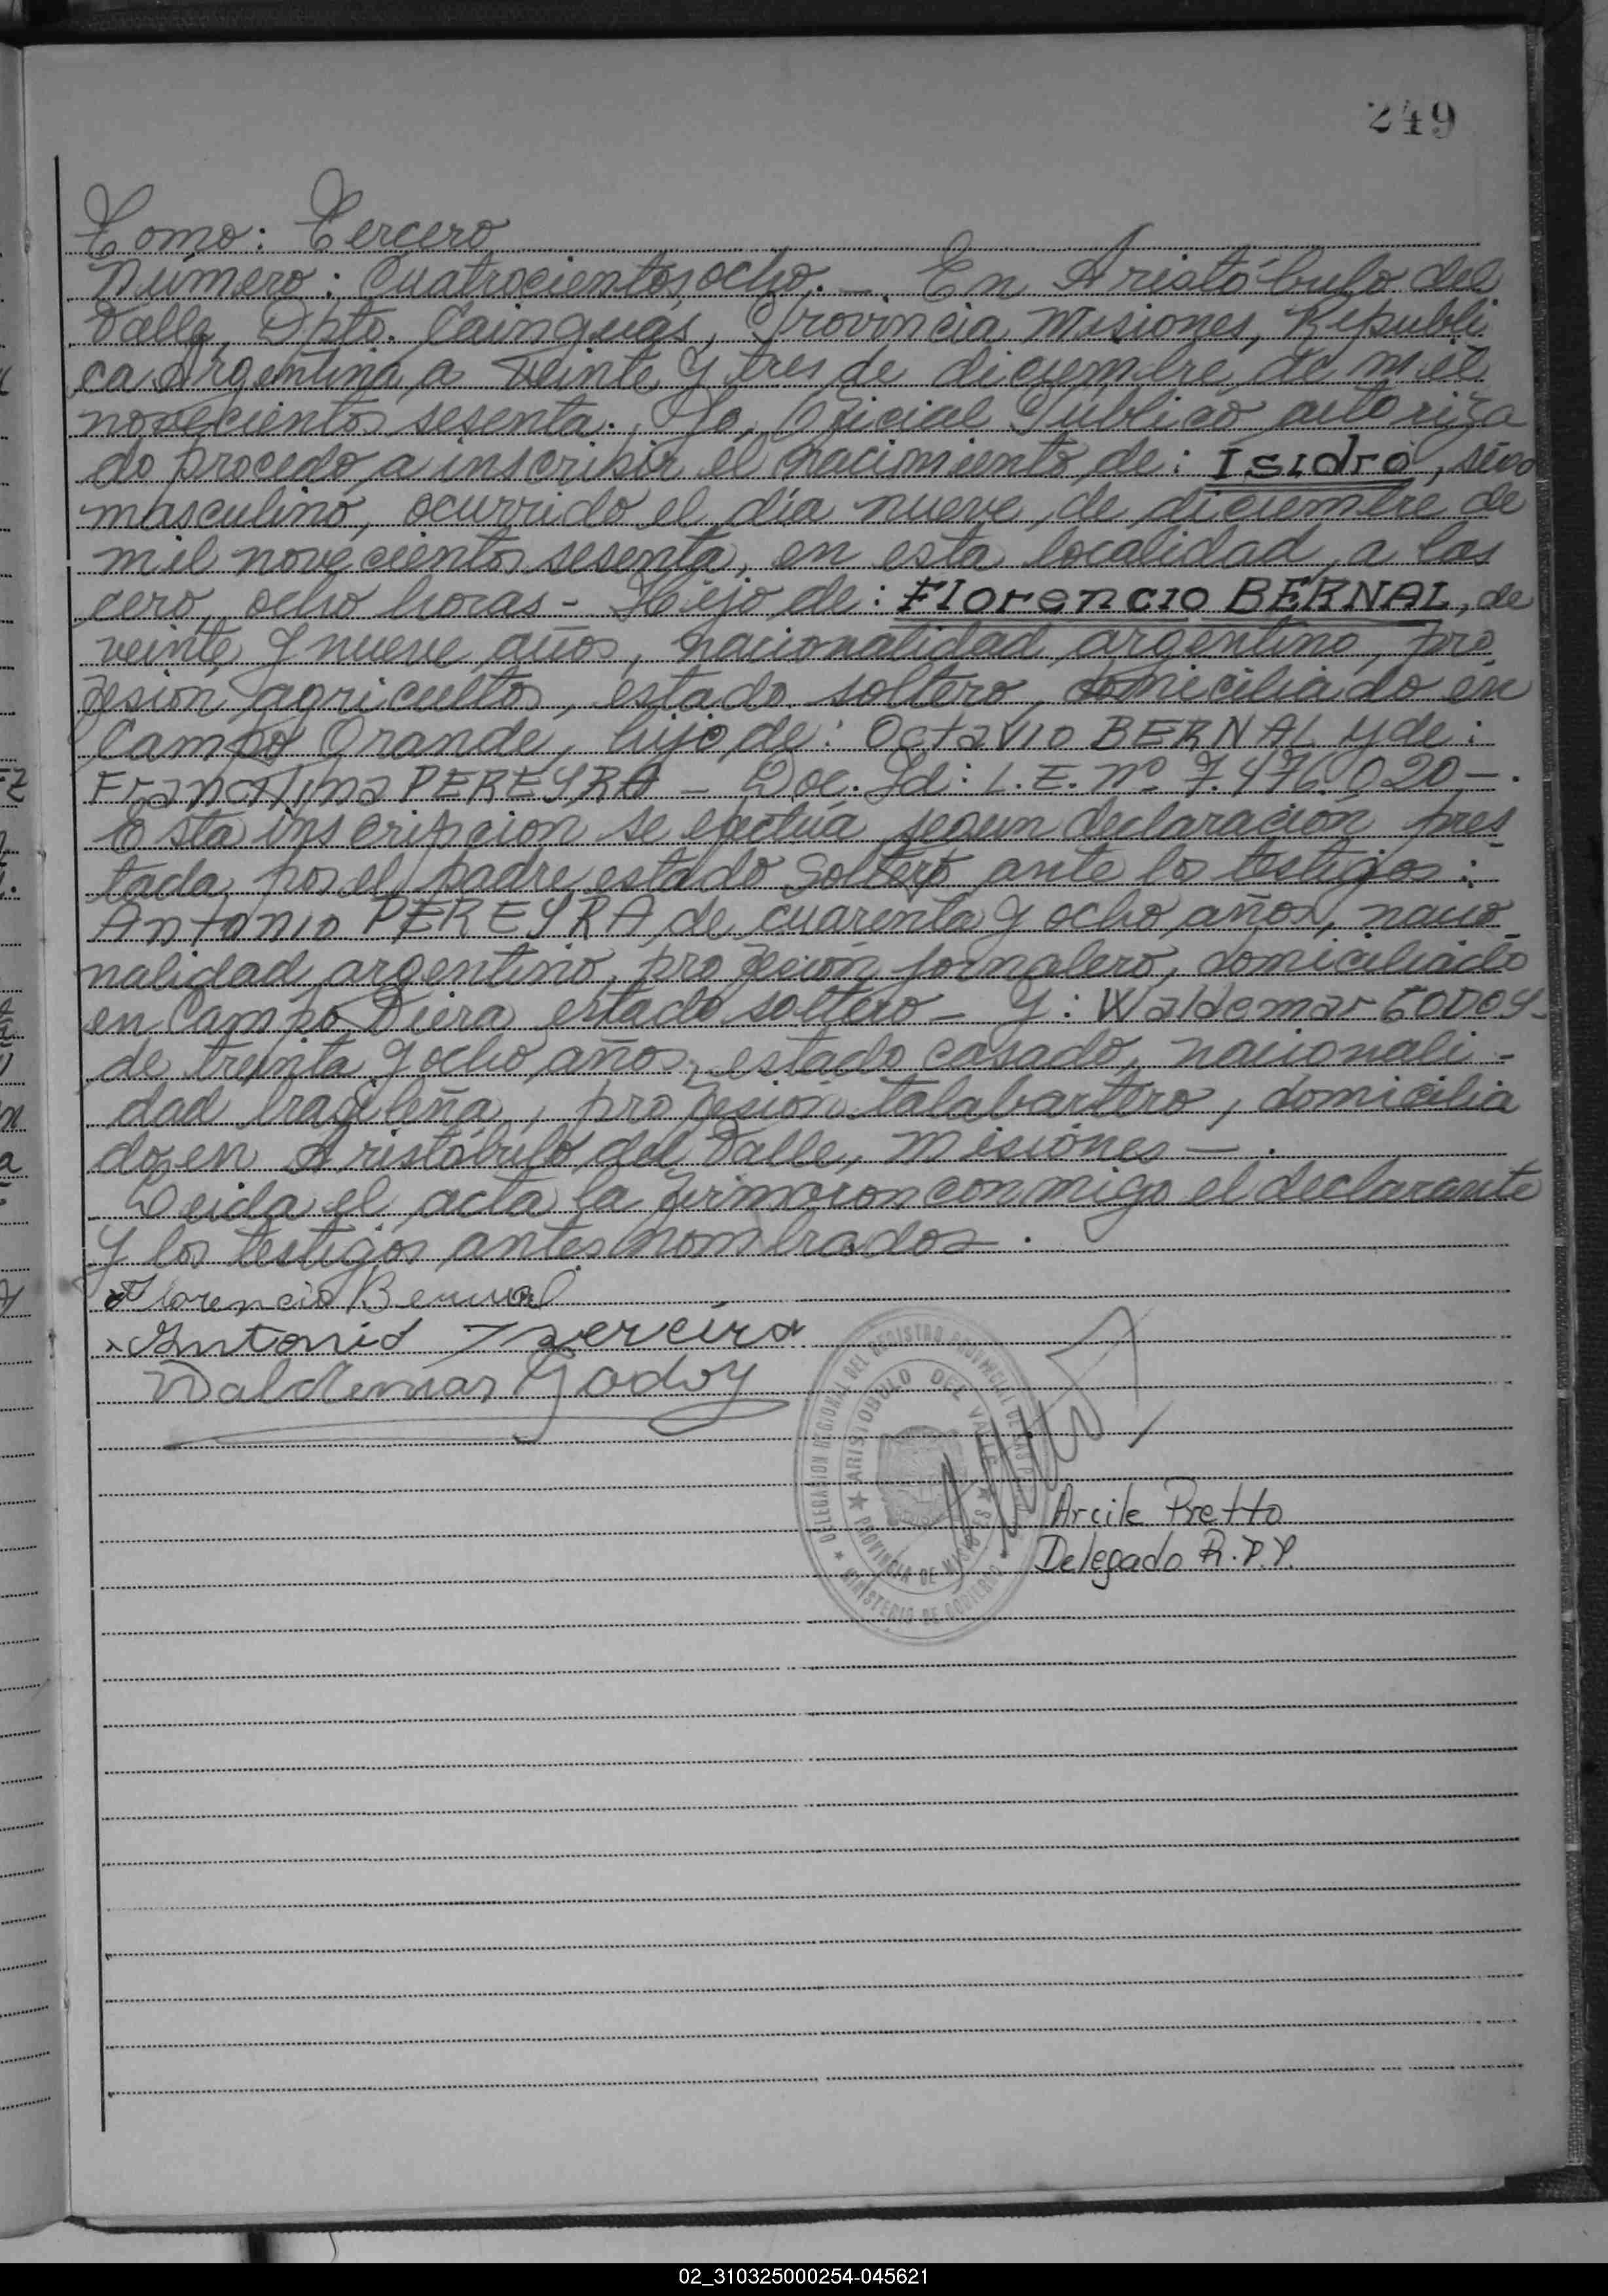 249
Tomo: Tercero
Número: Cuatrocientos ocho. - En Aristóbulo del
Valle, Dpto. Cainguás, Provincia Misiones, Republi
ca Argentina a veinte y tres de diciembre de mil
novecientos sesenta. Yo, Oficial Público autoriza
do procedo a inscribir el nacimiento de: Isidro, sexo
masculino, ocurrido el día nueve de diciembre de
mil novecientos sesenta, en esta localidad, a las
cero ocho horas - Hijo de: Florencio BERNAL, de
veinte y nueve años, nacionalidad argentino, pro
fesión agricultor, estado soltero, domiciliado en
Campo Grande, hijo de: Octavio BERNAL y de:
PEREYRA - Doc. Id: L.E. Nº 7.476.020 - .
Esta inscripcion se efectúa segun declaración pres
tada por el padre estado soltero ante los testigos:
Antonio PEREYRA de cuarenta y ocho años, nacio
nalidad argentino, profeción jornalero, domiciliado
en Campo Viera estado soltero - Y: Waldemar GODOY -
de treinta y ocho años, estado casado, nacionali -
dad brasileña, profesión talabartero, domicilia
do en Aristóbulo del Valle, Misiones - .
Leida el acta la firmaron conmigo el declarante
y los testigos antes nombrados.
Florencio Bernal
Antonio Pereira
Waldemar Godoy
DELEGACION REGIONAL DEL REGISTRO PROVINCIAL DE LAS P.
ARISTOBULO DEL VALLE
PROVINCIA DE MISIONES
MINISTERIO DE GOBIERNO
Arcile Pretto
Delegado R.P.P.
02_310325000254-045621